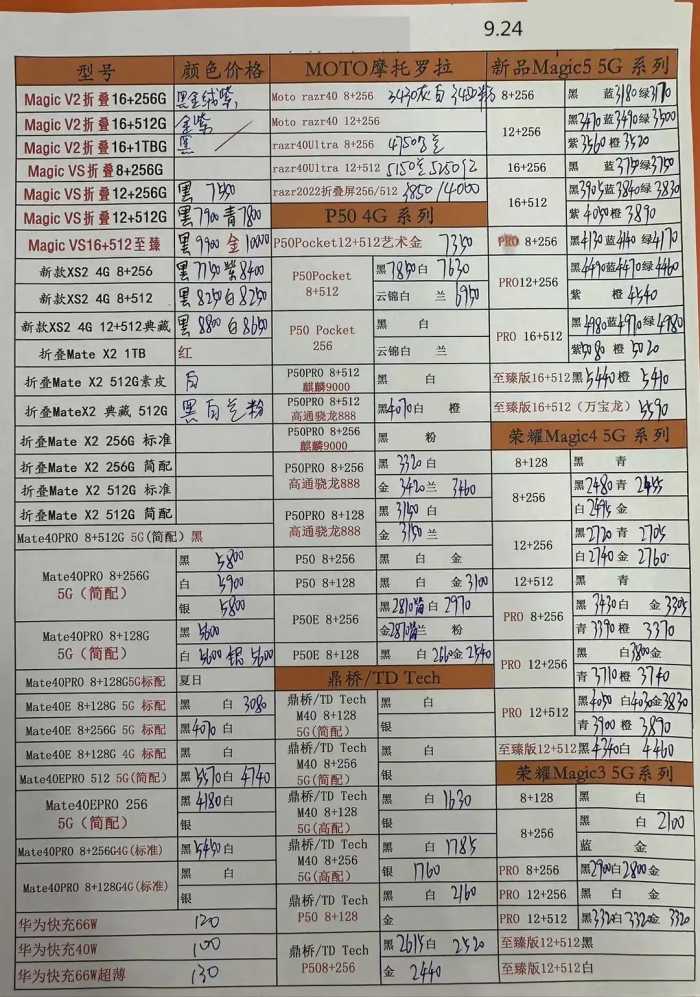 9.24
型号 颜色价格
Magic V2折叠16+256G 黑金绒紫
Magic V2折叠16+512G 金紫
Magic V2折叠16+1TBG 黑
Magic VS折叠8+256G
Magic VS折叠12+256G 黑 7550
Magic VS折叠12+512G 黑7900 青7800
Magic VS16+512至臻 黑9900 金10000
新款XS2 4G 8+256 黑7750 紫8400
新款XS2 4G 8+512 黑8250白8250
新款XS2 4G 12+512典藏 黑8800 白8650
折叠Mate X2 1TB 红
折叠Mate X2 512G素皮 白
折叠MateX2 典藏 512G 黑白兰粉
折叠Mate X2 256G 标准
折叠Mate X2 256G 简配
折叠Mate X2 512G 标准
折叠Mate X2 512G 简配
Mate40PRO 8+512G 5G(简配) 黑
Mate40PRO 8+256G
5G（简配）
黑 5800
白 5900
银 5800
Mate40PRO 8+128G
5G（简配）
黑 5600
白 5600 银 5600
Mate40PRO 8+128G5G标配 夏日
Mate40E 8+128G 5G 标配 黑 白 3080
Mate40E 8+256G 5G 标配 黑4070白
Mate40E 8+128G 4G 标配 黑 白
Mate40EPRO 512 5G(简配) 黑5570白 4740
Mate40EPRO 256
5G（简配）
黑4180白
银
Mate40PRO 8+256G4G(标准) 黑5450白
Mate40PRO 8+128G4G(标准)
黑 白
银
华为快充66W 120
华为快充40W 100
华为快充66W超薄 130
MOTO摩托罗拉
Moto razr40 8+256 3430灰白 3450粉
Moto razr40 12+256
razr40Ultra 8+256 4750
razr40Ultra 12+512 5150兰5250红
razr2022折叠屏256/512 3850/4000
P50 4G 系列
P50Pocket12+512艺术金 7350
P50Pocket
8+512
黑7850白 7630
云锦白 兰 6950
P50 Pocket
256
黑 白
云锦白 兰
P50PRO 8+512
麒麟9000
黑 白
P50PRO 8+512
高通骁龙888
黑4070白 橙
P50PRO 8+256
麒麟9000
黑 粉
P50PRO 8+256
高通骁龙888
黑 3320白
金 3420兰 3460
P50PRO 8+128
高通骁龙888
黑 3150白
金 3150兰
P50 8+256 黑 白 金
P50 8+128 黑 白 金3100
P50E 8+256
黑2810 白 2970
金2870 兰 粉
P50E 8+128 黑 白 2660金 2540
鼎桥/TD Tech
鼎桥/TD Tech
M40 8+128
5G(简配)
黑 白
银
鼎桥/TD Tech
M40 8+256
5G(简配)
黑 白
银
鼎桥/TD Tech
M40 8+128
5G(高配)
黑 白 1630
银
鼎桥/TD Tech
M40 8+256
5G(高配)
黑 白 1785
银 1760
鼎桥/TD Tech
P50 8+128
黑 白 2160
金
鼎桥/TD Tech
P508+256
黑 2615白 2520
金 2440
新品Magic5 5G 系列
8+256 黑 蓝3180绿3170
12+256
黑3470蓝3490绿3500
紫3560橙 3520
16+256 黑 蓝3750绿3750
16+512
黑3905蓝3840绿3830
紫 4050橙 3890
PRO 8+256 黑4130蓝4140 绿4170
PRO12+256
黑4490蓝4470绿4460
紫 橙 4540
PRO 16+512
黑4980蓝4970绿4980
紫5080 橙 5020
至臻版16+512 黑5440橙 5410
至臻版16+512（万宝龙）5590
荣耀Magic4 5G 系列
8+128 黑 青
8+256
黑2480青 2455
白2495金
12+256
黑2720青 2705
白2740金 2760
12+512 黑 青
PRO 8+256
黑3430白 金 3305
青3390橙 3370
PRO 12+256
黑 白3800金
青3710橙 3740
PRO 12+512
黑4050 白4030金3830
青3900橙 3890
至臻版12+512黑4340白 4460
荣耀Magic3 5G系列
8+128 黑 白
8+256
黑 白 2100
蓝 金
PRO 8+256 黑2900白2800金
PRO 12+256 黑 白 金
PRO 12+512 黑3320白3320金 3320
至臻版12+512黑
至臻版12+512白